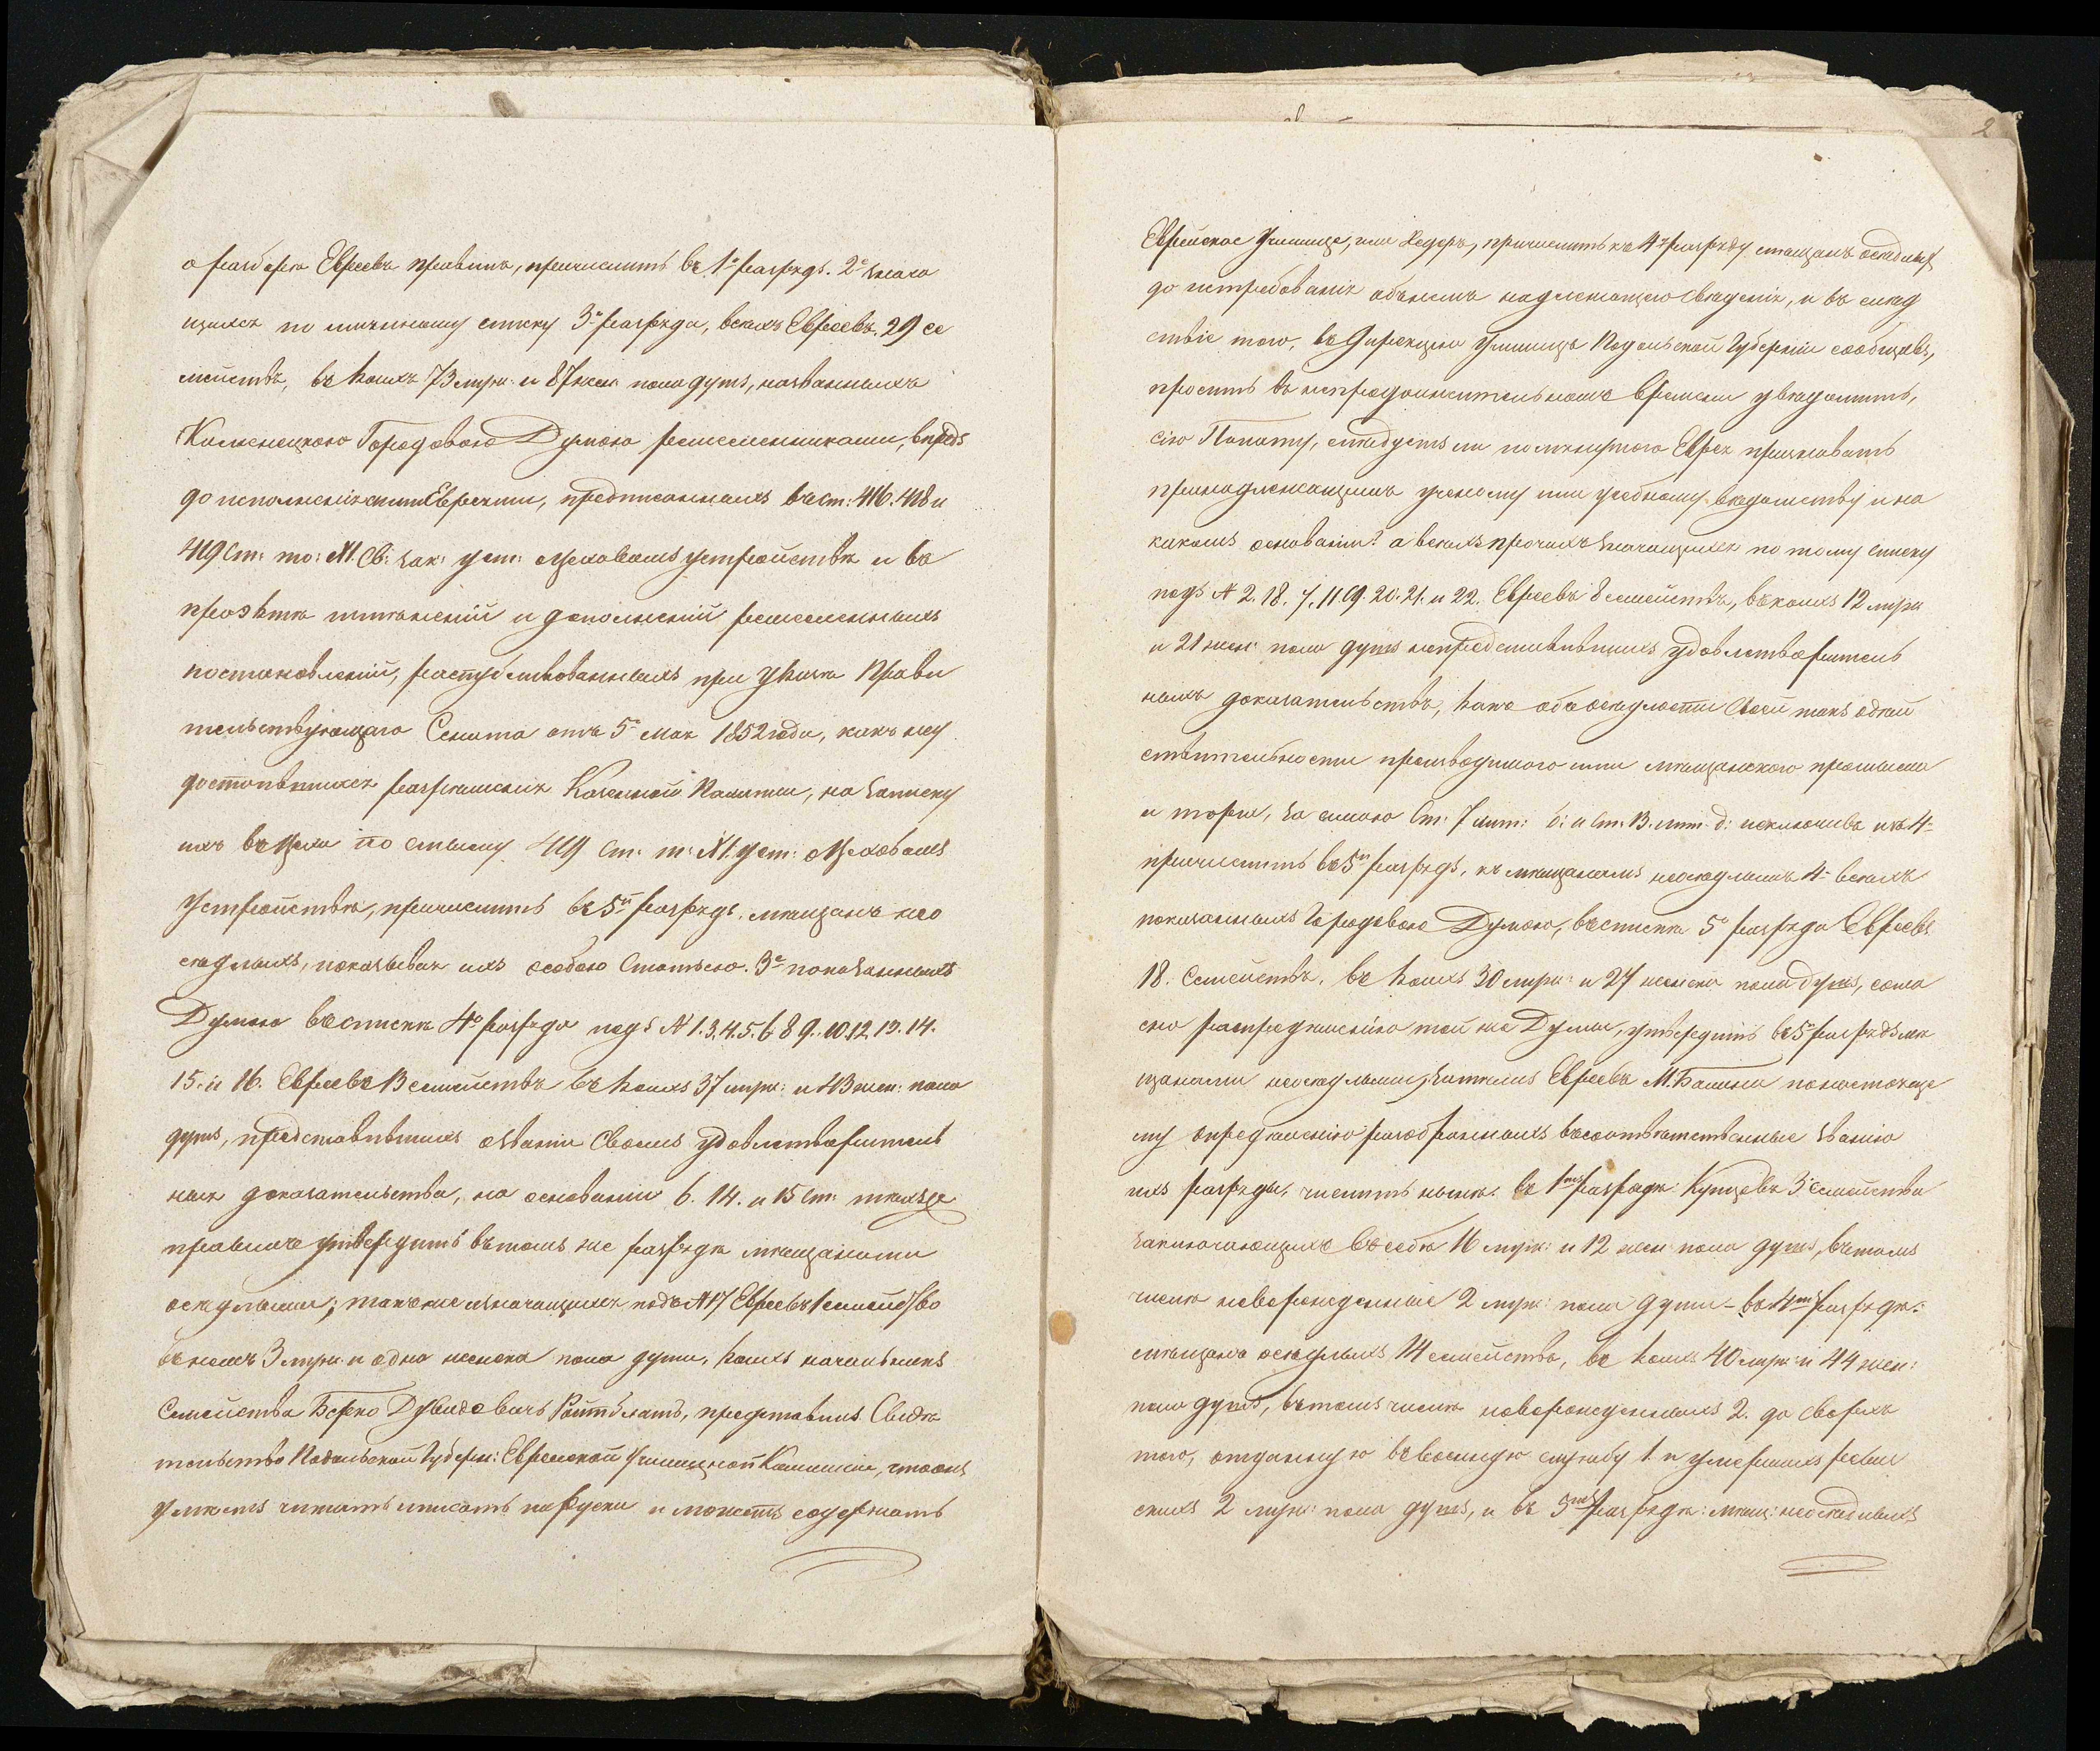 о разборѣ Евреевъ правилъ, причислить въ 1й разрядъ. 2е знача
щихся по мѣщанскому списку 3го разряда, всѣхъ Евреевъ 29 се
мействъ, въ коихъ 73 муж: и 87 жен пола душъ, названныхъ
Каменецкою Городовою Думою ремесленниками, впредь
до исполненія сими Евреями, предписанныхъ въ ст: 416. 418 и
419 Ст: то: XI. Св: зак: уст: о Цеховомъ устройствѣ и въ
проэктѣ измѣненій и дополненій ремесленныхъ
постановленій, распубликованныхъ при Указѣ Прави
тельствующаго Сената отъ 5го мая 1852 года, какъ неу
достоившихся разрѣшенія Казенной Палаты, на записку
ихъ въ Цехи по смыслу 419 ст: т: XI. уст: о Цеховомъ
Устройствѣ, причислить въ 5й разрядъ, мѣщанъ нео
сѣдлыхъ, показывая ихъ особою Статьею. 3е показанныхъ
Думою въ спискѣ 4го разряда подъ № 1. 3. 4. 5. 6 8 9. 10. 12. 13. 14.
15. и 16. Евреевъ 13 семействъ въ коихъ 37 муж: и 43 жен: пола
душъ, представившихъ о званіи своемъ удовлетворитель
ныя доказательства, на основаніи 6. 14. и 15 ст: тѣхъ же
правилъ утвердить въ томъ же разрядѣ мѣщанами
осѣдлыми; также значащихся подъ № 17 Евреевъ 1 семейство
въ немъ 3 муж: и одна женска пола души, коихъ начальникъ
Семейства Берко Дувидовичъ Ройтблатъ, представилъ Свидѣ
тельство Подольской Губерн: Еврейской Училищной Коммисіи, что онъ
умѣетъ читать и писать по Руски и можетъ содержать

2
Еврейское Училище, или Хедеръ, причислить къ 4му разряду мѣщанъ осѣдлыхъ
до истребованія объ немъ надлежащаго свѣденія, и въ слѣд
ствіе того, въ Дирекцію Училищъ Подольской Губерніи сообщивъ,
просить въ непродолжительномъ времени увѣдомить,
сію Палату, слѣдуетъ ли помянутого Еврея признавать
принадлежащимъ ученому или учебному вѣдомству и на
какомъ основаніи? а всѣхъ прочихъ значащихся по тому списку
подъ № 2. 18. 7. 11. 19. 20. 21. и 22. Евреевъ 8 семействъ, въ коихъ 12 муж
и 21 жен: пола душъ непредставившихъ удовлетворитель
ныхъ доказательствъ, какъ объ осѣдлости своей такъ о дѣй
ствительности производимого ими мѣщанского промысла
и торга, за силою Ст: 7 лит: б: и Ст: 13. лит д: исключивъ изъ 4го
причислить въ 5й разрядъ, къ мѣщанамъ неосѣдлымъ 4е всѣхъ
показанныхъ Городовою Думою, въ спискѣ 5го разряда Евреевъ
18. Семействъ, въ коихъ 30 муж: и 27 женска пола душъ, согла
сно распредѣленію той же Думы, утвердить въ 5й разрядѣ мѣ
щанами неосѣдлыми, затѣмъ Евреевъ М. Балина по настояще
му опредѣленію разобранныхъ въ соотвѣтственные званію
ихъ разряды, числить нынѣ. въ 1мъ разрядѣ: Купцовъ 3 семейства
заключающихъ въ себѣ 16 муж: и 12 жен пола душъ, въ томъ
числѣ новорожденные 2 муж: пола души - въ 4мъ разрядѣ:
мѣщанъ осѣдлыхъ 14 семействъ, въ коихъ 40 муж: и 44 жен:
пола душъ, въ томъ числѣ новорожденныхъ 2. да сверхъ
того, отданную въ военную службу 1 и умершихъ ревиз
скихъ 2 муж: пола душъ, и въ 5мъ разрядѣ: мѣщ: неосѣдлыхъ